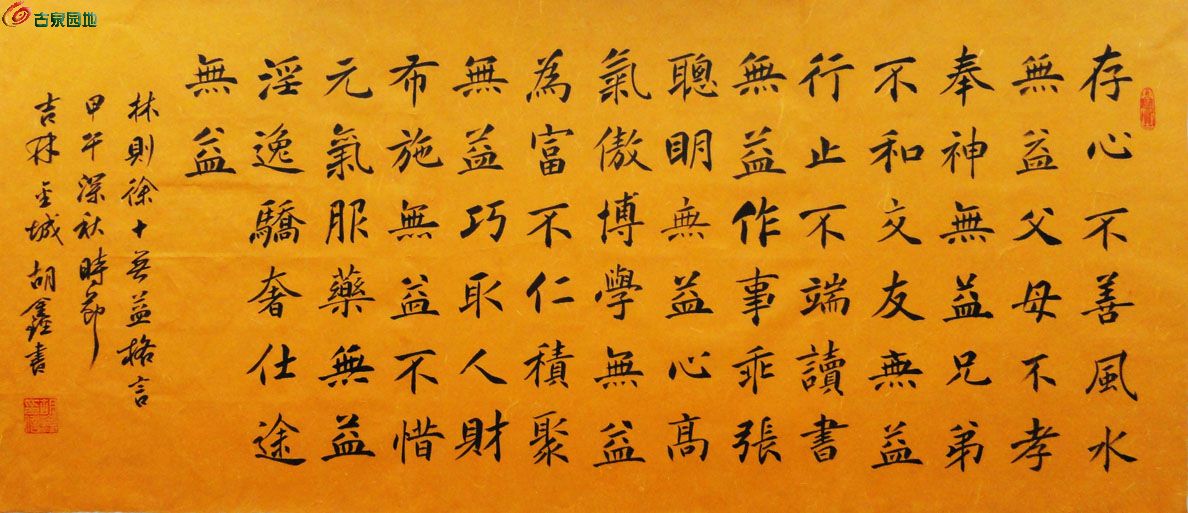 古泉园地
存心不善風水
無益父母不孝
奉神無益兄弟
不和交友無益
行止不端讀書
無益作事乖張
聰明無益心高
氣傲博學無益
為富不仁積聚
無益巧取人財
布施無益不惜
元氣服藥無益
淫逸驕奢仕途
無益
林則徐十無益格言
甲午深秋時節
吉林金城胡鑫書